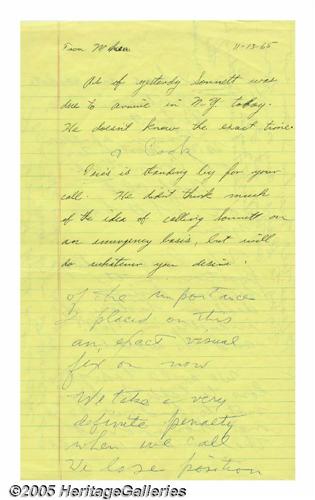 From M 11-13-65
As of yesterday Sonnett was
due to arrive in N.Y. today.
He doesn't know the exact time.
Cook
is standing by for your
call. He didn't think much
of the idea of calling Sonnett on
an emergency basis, but will
do whatever you desire.
of the importance
I placed on this
an exact visual
fix on now
We take a very
definite penalty
when we call
We lose position
©2005 HeritageGalleries